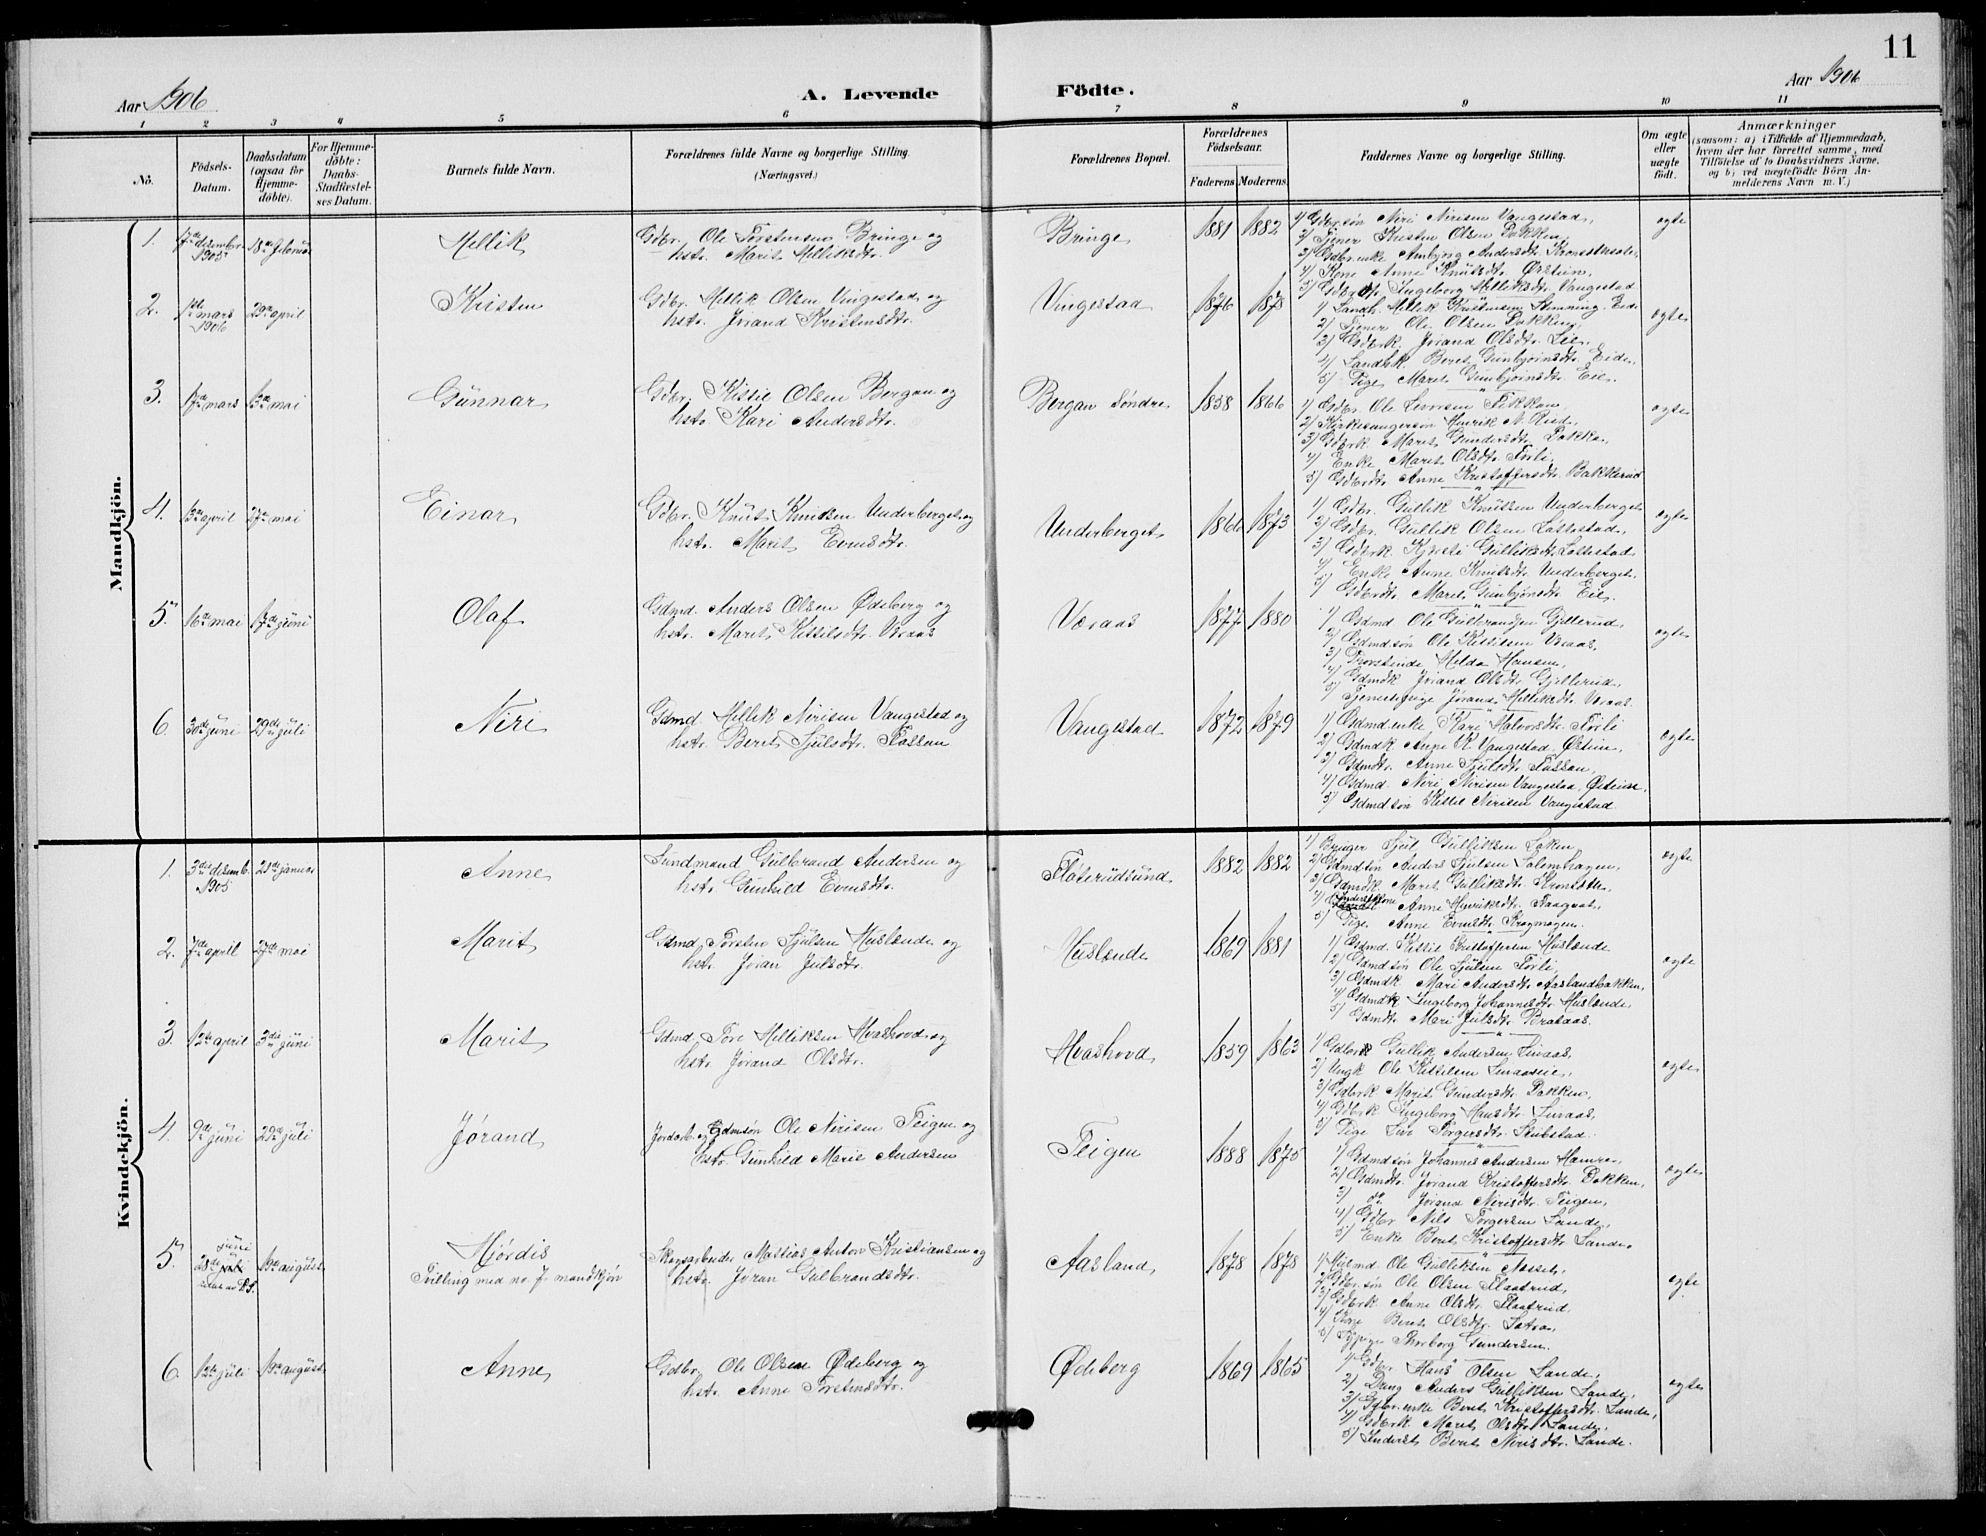 11
Aar 1906
A. Levende
Födte.
Aar 1906
1 2 3 4 5 6 7 8 9 10 11
No.
Födsels-
Datum.
Daabsdatum
(ogsaa for
Hjemme-
döbte).
For Hjemme-
döbte:
Daabs-
Stadfæstel-
ses Datum.
Barnets fulde Navn.
Forældrenes fulde Navne og borgerlige Stilling.
(Næringsvei.)
Forældrenes Bopæl.
Forældrenes
Födselsaar.
Faderens. Moderens.
Faddernes Navne og borgerlige Stilling.
Om ægte
eller
uægte
födt.
Anmærkninger
(saasom: a) i Tilfælde af Hjemmedaab,
hvem der har forrettet samme, med
Tilföielse af to Daabsvidners Navne,
og b) ved uægtefödte Börn An-
melderens Navn m. V.)
Mandkjön.
1. 7de desember 1905 18de februar
Hellik
Gdbr. Ole Torstensen Bringe og
hstr. Marit Helliksdtr.
Bringe
1881 1882
1) Gdbr.søn Niri Nirisen Vangestad,
2) Tjener Kristen Olsen Bakken,
3) Gdbr.enke Ambjørg Andersdtr.
4) Kone Anne Knutsdtr. Østein,
5) Gdbrdtr. Ingeborg Helliksdtr. Vangestad
ægte
2. 1ste mars 1906 29de april
Kristen
Gdbr. Hellik Olsen Vingestad og
hstr. Jørand Kristensdtr.
Vingestad
1876 1878
1) Landh. Hellik Kristensen Eide
2) Tjener Ole Olsen Bakken,
3) Gdbrk. Jørand Olsdtr. Lie,
4) Landhk. Berit Gunbjørnsdtr. Eide,
5) Pige Marit Gunbjørnsdtr. Eie.
ægte
3. 17de mars 13de mai
Gunnar
Gdbr. Kittil Olsen Bergan og
hstr. Kari Andersdtr.
Bergan Søndre
1858 1866
1) Gdbr. Ole
2) Kirkesangersøn Henrik N. Ried,
3) Gdbrk. Marit Gundersdtr. Bakke,
4) Enke Marit Olsdtr. Førli,
5) Gdbrdtr. Anne Kristoffersdtr. Bakkerud
ægte
4. 13de april 27de mai
Einar
Gdbr. Knut Knutsen Underberget og
hstr. Marit Evensdtr.
Underberget
1866 1873
1) Gdbr. Gullik Knutsen Underberget
2) Gdbr. Gullik Olsen Lattestad,
3) Gdbrk. Kjersti Gulliksdtr. Lattestad
4) Enke Anne Knutsdtr. Underberget,
5) Gdbrdtr. Marit Gunbjørnsdtr. Eie.
ægte
5. 16de mai 17de juni
Olaf
Gdmd. Anders Olsen Ødeberg og
hstr. Marit Kittilsdtr. Veraas
Væraas
1877 1880
1) Gdmd. Ole Gulbrandsen Gjellerud,
2) Gdmdsøn Ole Kittilsen Veraas,
3) Provstinde Helda Hansen,
4) Gdmdk. Jørand Olsdtr. Gjellerud,
5) Tjenestepige Jørand Helliksdtr. Veraas.
ægte
6. 30de juni 29de juli
Niri
Gdmd. Hellik Nirisen Vangestad og
hstr. Berit Sjulsdtr. Fossan
Vangestad
1872 1879
1) Gdmd.enke Kari Halvorsdtr. Førli
2) Gdmdk. Anne K. Vangestad, Østein,
3) Gdmdtr. Anne Sjulsdtr. Fossan,
4) Gdmd. Niri Nirisen Vangestad, Østein,
5) Gdmdsøn Kittil Nirisen Vangestad
ægte
Kvindekjön.
1. 3die desemb. 1905 21de januar
Anne
Lundmand Gulbrand Andersen og
hstr. Gunhild Evensdtr.
Flaterudsund
1882 1882
1) Bruger Sjul Gulliksen Loken,
2) Gdmdsøn Anders Sjulsen
3) Gdmdk. Marit Gulliksdtr.
4) Anne Henriksdtr.
5) Pige Anne Evensdtr.
ægte
2. 7de april 27de mai
Marit
Gdmd. Torsten Sjulsen Huslænde og
hstr. Jøran Julsdtr.
Huslænde
1869 1881
1) Gdmd. Kittil Kristoffersen Huslænde
2) Gdmdsøn Ole Sjulsen Førli,
3) Gdmdk. Mari Andersdtr. Aaslandbakken,
4) Gdmdk. Ingeborg Johannesdtr. Huslænde,
5) Gdmdtr. Mari Julsdtr. Brataas.
ægte
3. 12te april 3die juni
Marit
Gdmd. Tore Helliksen Hvashovd og
hstr. Jørand Olsdtr.
Hvashovd
1859 1863
1) Gdbrk. Gullik Andersen Linaas,
2) Ungk. Ole Kittilsen
3) Gdbrk. Marit Gundersdtr. Bakken,
4) Gdbrk. Ingeborg Hansdtr. Linaas,
5) Pige Live Torgersdtr. Stubstad.
ægte
4. 9de juni 29de juli
Jørand
Jordarb. og Gdmsøn Ole Nirisen Teigen og
hstr. Gunhild Marie Andersen
Teigen
1888 1875
1) Gdmdsøn Johannes Andersen Hamre,
2) Gdmdtr. Jørand Kristoffersdtr. Bakken,
3) do Jørand Nirisdtr. Teigen,
4) Gdbr. Nils Torgersen Lande,
5) Enke Berit Kristoffersdtr. Lande.
ægte
5. 28de juni 19de august
Hjørdis
Tvilling med no. 7 mandkjøn
Skogsarbeider Mathias Anton Kristiansen og
hstr. Jøran Gulbrandsdtr.
Aasland
1878 1878
1) Husmd. Ole Gulliksen Næset,
2) Gdbr.søn Ole Olsen Flaatrud,
3) Gdbrk. Anne Olsdtr. Flaatrud,
4) Pige Berit Olsdtr.
5) Pige Thorborg Gundersen.
ægte
6. 12te juli 19de august
Anne
Gdbr. Ole Olsen Ødeberg og
hstr. Anne Torstensdtr.
Ødeberg
1869 1865
1) Gdbr. Hans Olsen Lande,
2) Dreng Anders Gulliksen Lande,
3) Gdbr.enke Berit Kristoffersdtr. Lande,
4) Gdbrk. Marit Olsdtr. Lande,
5) Inderst Berit Nirisdtr. Lande.
ægte